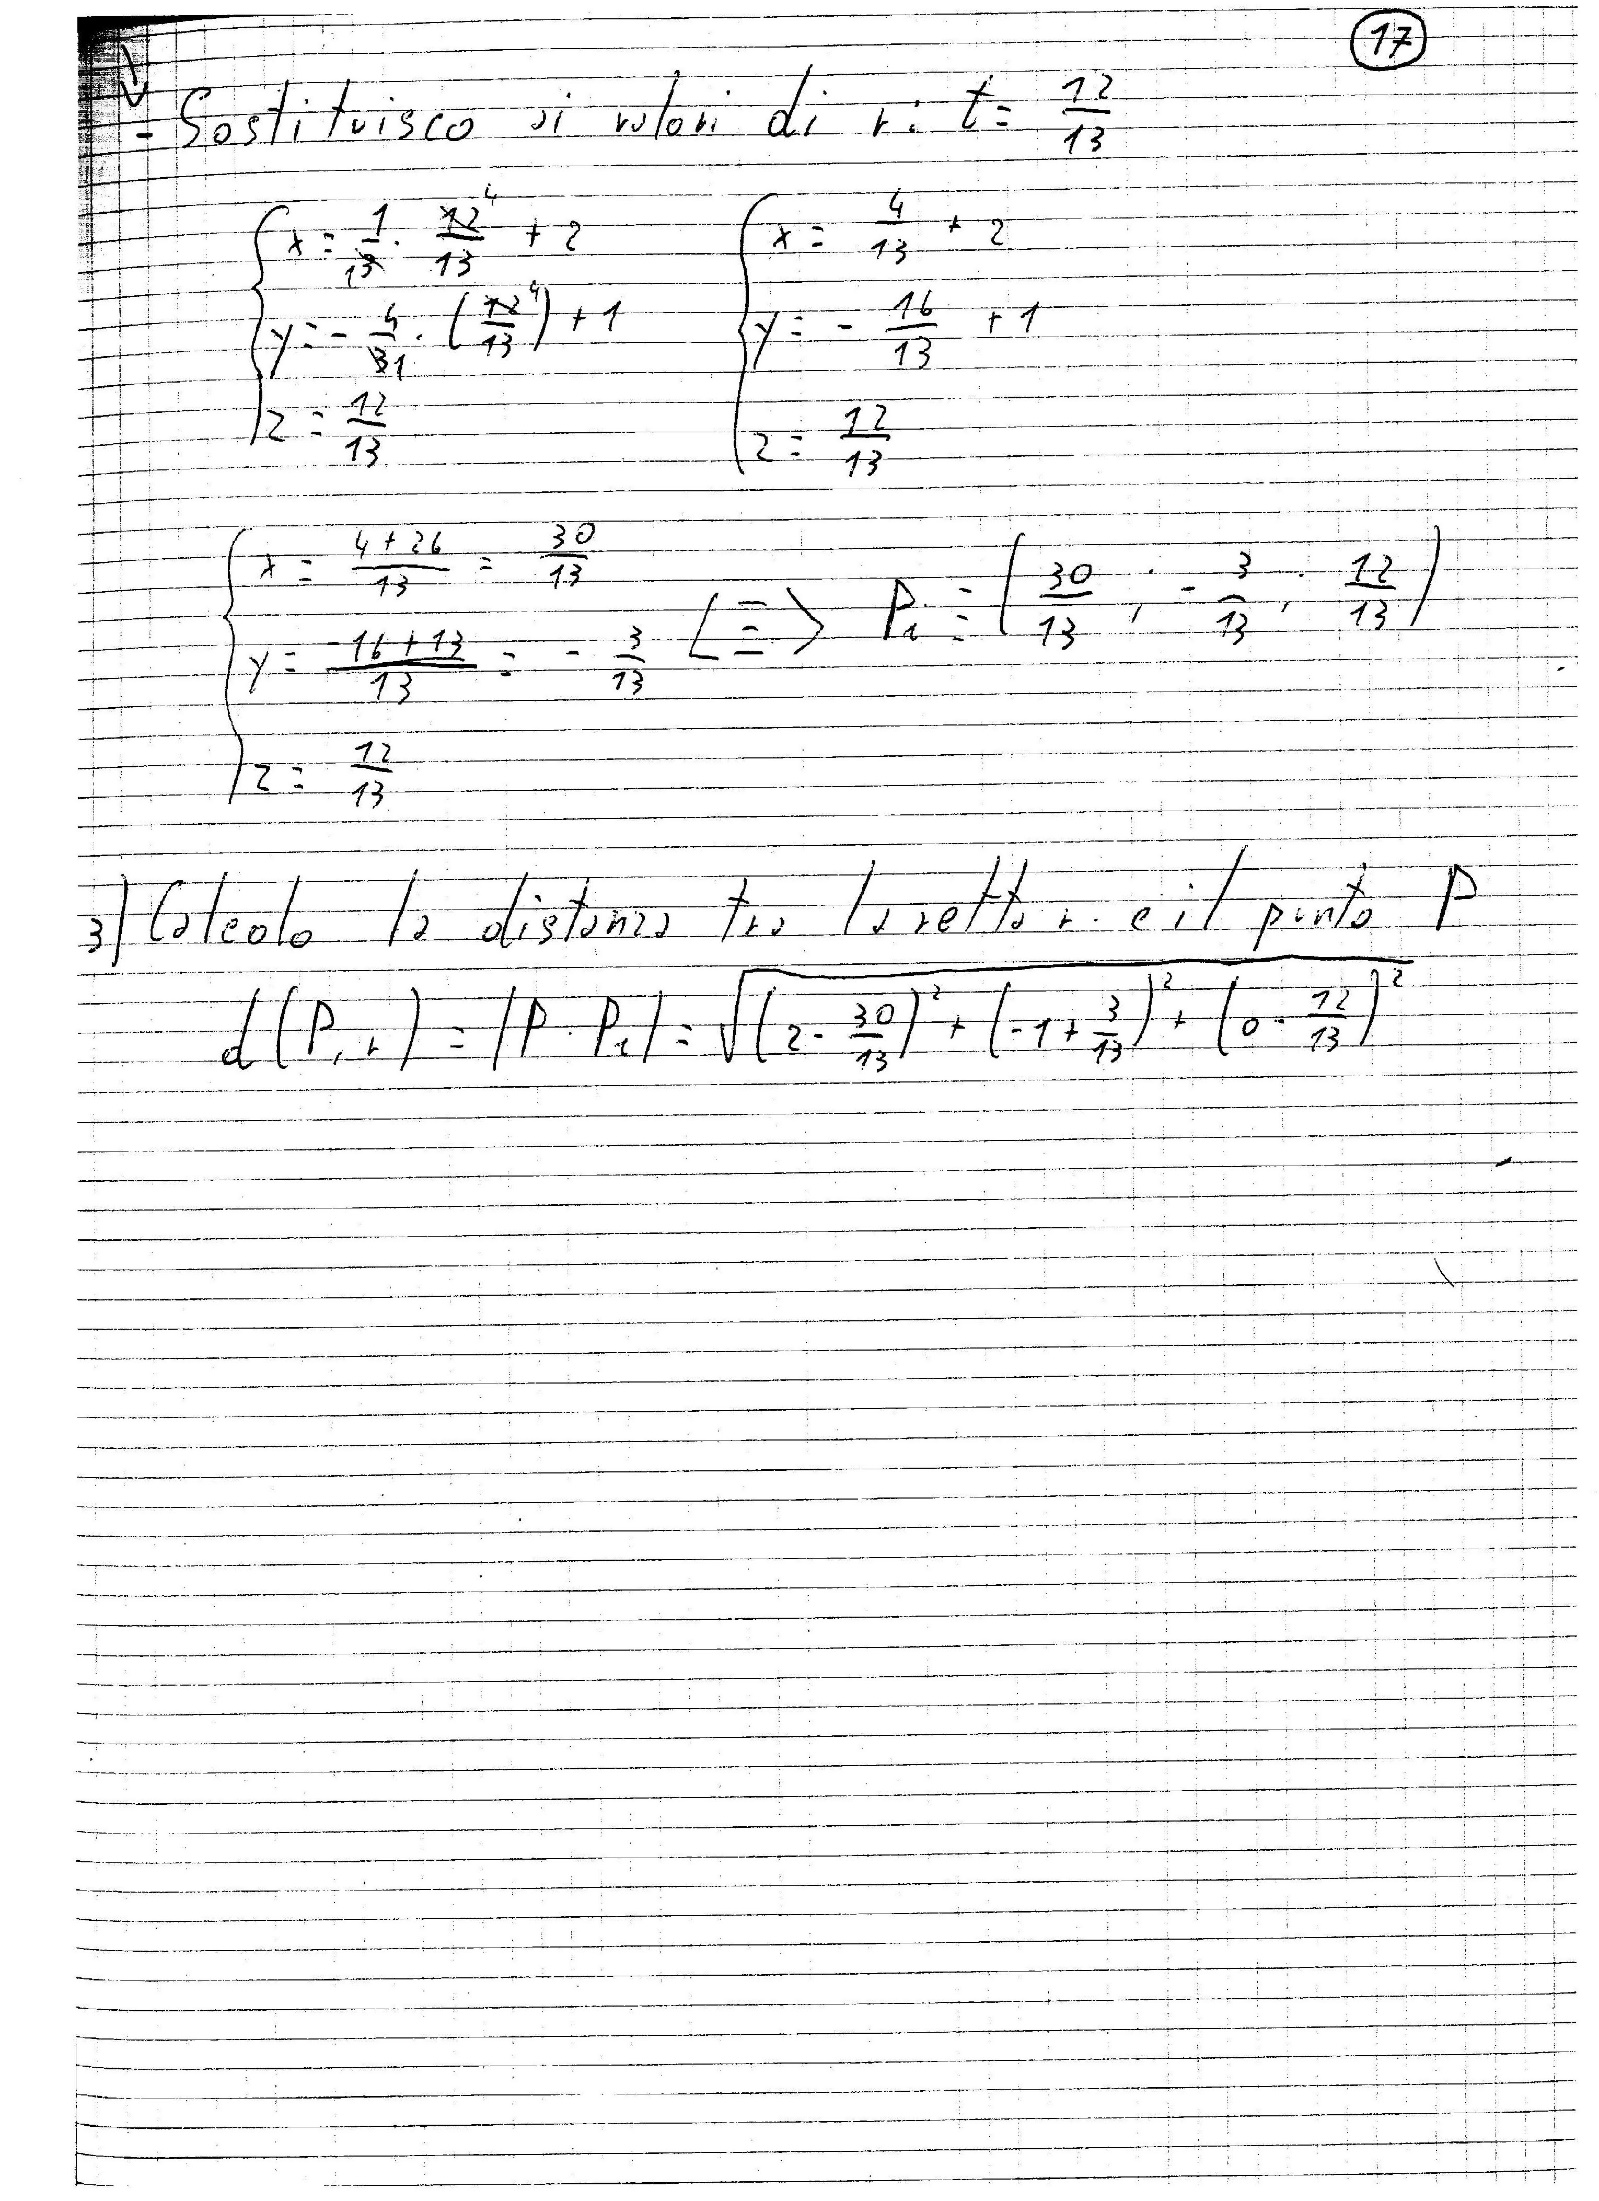 17
- Sostituisco ai valori di r: t = 12/13
{ x = 1/3 · 12/13 + 2    { x = 4/13 + 2
y = - 4/3 · (12/13) + 1    y = - 16/13 + 1
z = 12/13    z = 12/13
{ x = (4+26)/13 = 30/13
y = (-16+13)/13 = - 3/13 <≡> P₁ ≡ (30/13 ; - 3/13 ; 12/13)
z = 12/13
3) Calcolo la distanza tra la retta r e il punto P
d(P, r) = |P - P₁| = √((2 - 30/13)² + (-1 + 3/13)² + (0 - 12/13)²)